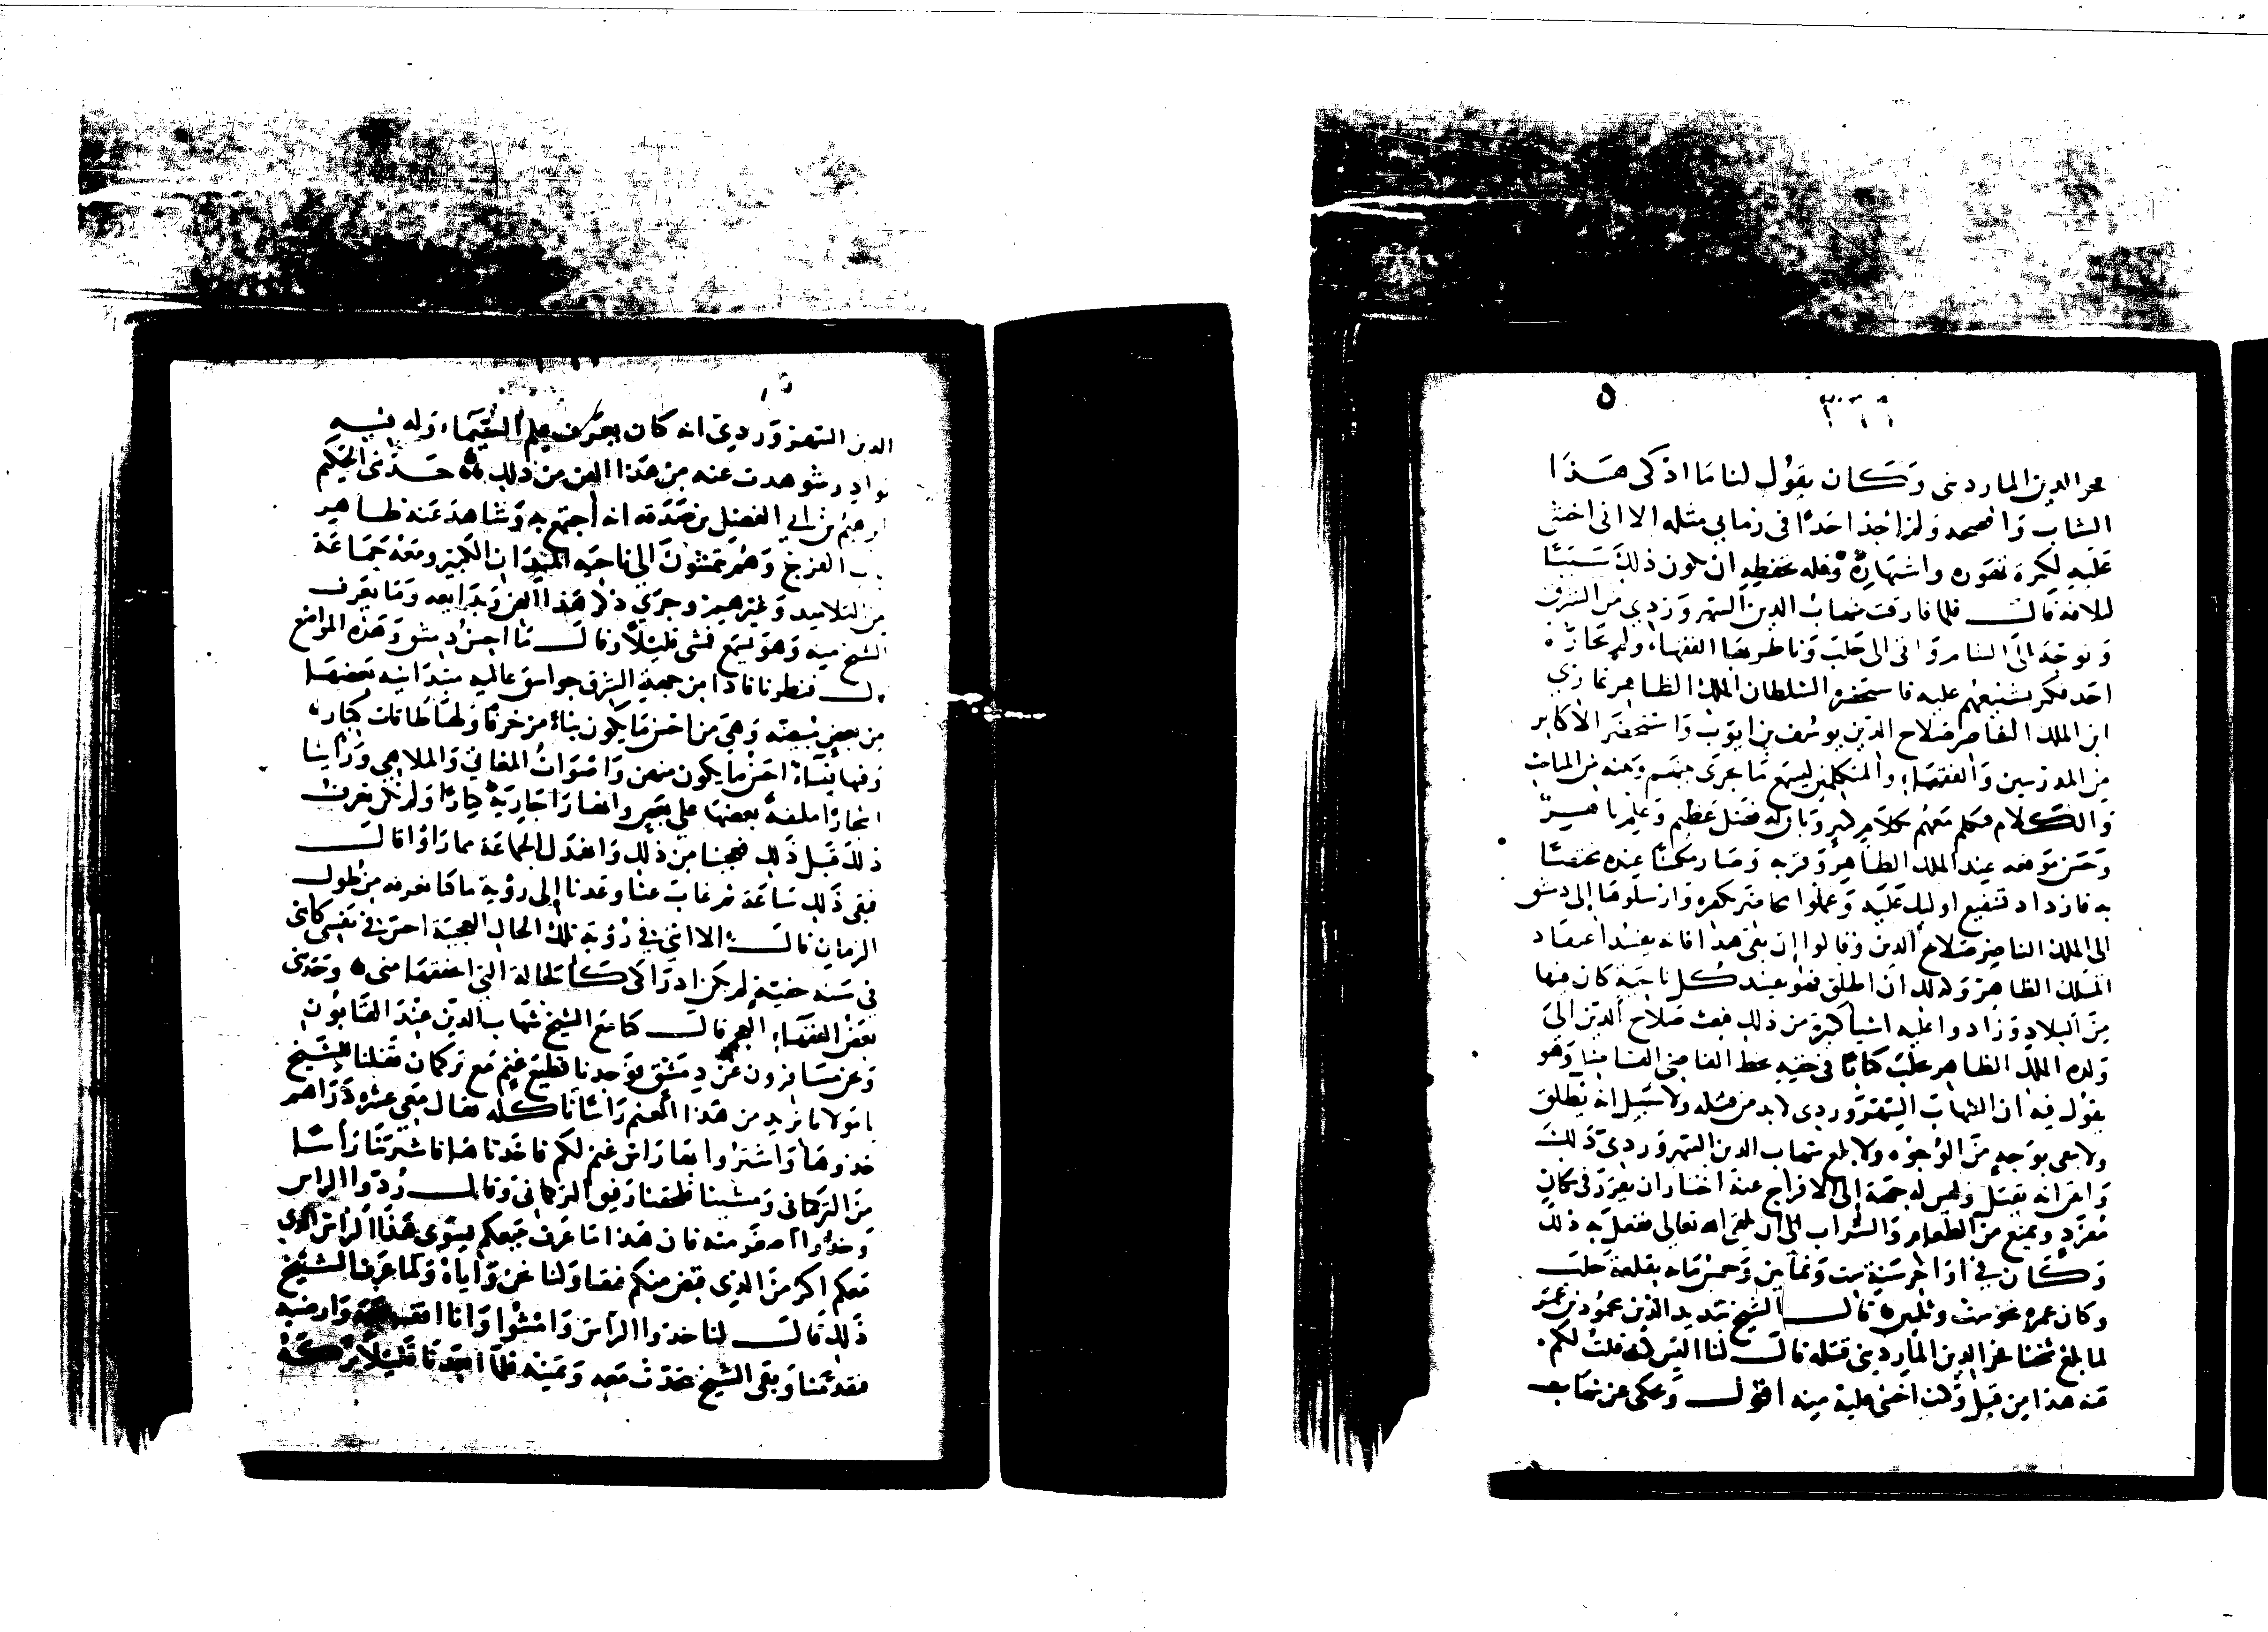 ٣٠٦٦
٥
فخر الدين المارديني وكان يقول لنا ما اذكى هذا
الشاب وافصحه ولم اجد احدا في زماني مثله الا اني اخشى
عليه لكثرة تهوره واشتهاره وقلة تحفظه ان يكون ذلك سببا
لتلافه قال فلما فارقت شهاب الدين السهروردي من الشرق
وتوجه الى الشام واتى الى حلب وناظر بها الفقهاء ولم يجاره
احد فكثر تشنيعهم عليه فاستحضره السلطان الملك الظاهر غازي
ابن الملك الناصر صلاح الدين يوسف بن ايوب واستحضر الاكابر
من المدرسين والفقهاء والمتكلمين ليسمع ما يجري بينهم وبينه من المباحث
والكلام فتكلم معهم بكلام كثير وبان له فضل عظيم وعلم باهر
وحسن موقعه عند الملك الظاهر وقربه وصار مكينا عنده مختصا
به فازداد تشنيع اوليك عليه وعملوا محاضر بكفره وارسلوها الى دمشق
الى الملك الناصر صلاح الدين وقالوا ان بقى هذا فانه يفسد اعتقاد
الملك الظاهر وكذلك ان اطلق فهو يفسد كل ناحية كان فيها
من البلاد وزادوا عليه اشيا كثيرة من ذلك فبعث صلاح الدين الى
ولده الملك الظاهر بحلب كتابا في حقه بخط القاضي الفاضل وهو
يقول فيه ان الشهاب السهروردي لابد من قتله ولا سبيل انه يطلق
ولا يبقى بوجه من الوجوه ولا بلغ شهاب الدين السهروردي ذلك
وايقن انه يقتل وليس له جهة الى الافراج عنه اختار ان يفرد في مكان
مفرد ويمنع من الطعام والشراب الى ان يلقى الله تعالى ففعل به ذلك
وكان في اواخر سنة ست وثمانين وخمس ماية بقلعة حلب
وكان عمره نحو ست وثلثين قال الشيخ سديد الدين محمود بن عمر
لما بلغ شيخنا فخر الدين المارديني قتله قال لنا اليس كنت قلت لكم
عنه هذا من قبل وكنت اخشى عليه منه اقول ويحكى عن شهاب
الدين السهروردي انه كان يعرف علم السيمياء وله فيه
نوادر شوهدت عنه من هذا الفن من ذلك حدثني الحكيم
ابرهيم بن ابي الفضل بن صدقه انه اجتمع به وشاهد عنه ظاهر
باب الفرج وهم يتمشون الى ناحية الميدان الكبير ومعه جماعة
من التلاميد وغيرهم وجرى ذكر هذا الفن وبدايعه وما يعرف
الشيخ منه وهو يسمع فمشى قليلا وقال ما احسن دمشق وهذه المواضع
قال فنظرنا فاذا من جهة الشرق جواسق عاليه متدانيه بعضها
من بعض مبيضه وهي من احسن ما يكون بناء وزخرفا ولها طاقات كبار
وفيها نساء احسن ما يكون منهن واصوات المغاني والملاهي وراينا
اشجارا ملتفة بعضها على بعض وانهارا جارية كبارا ولم نكن نعرف
ذلك قبل ذلك فعجبنا من ذلك وانذهل الجماعة مما راوا قال
فبقى ذلك ساعة ثم غاب عنا وعدنا الى رؤية ما كنا نعرفه من طول
الزمان قال الا انني في رؤية تلك الحال العجيبة احس في نفسي كانني
في سنه خفية لم يكن ادراكي كالحالة التي اتحققها مني وحدثني
بعض الفقهاء العجم قال كنا مع الشيخ شهاب الدين عند القابون
ونحن مسافرون عن دمشق فوجدنا قطيع غنم مع تركمان فقلنا للشيخ
يا مولانا نريد من هذا الغنم راسا ناكله فقال معي عشرة دراهم
خذوها واشتروا بها راس غنم لكم فاخذناها فاشترينا راسا
من التركماني ومشينا فلحقنا رفيق التركماني وقال ردوا الراس
وخذوا اصغر منه فان هذا ما عرف يبيعكم يسوى هذا الراس الذي
معكم اكثر من الذي قبض منكم فتقاولنا نحن واياه ولما عرف الشيخ
ذلك قال لنا خذوا الراس وامشوا وانا اقف معه وارضيه
فتقدمنا وبقى الشيخ يتحدث معه ويمنيه فلما ابعدنا قليلا تركه